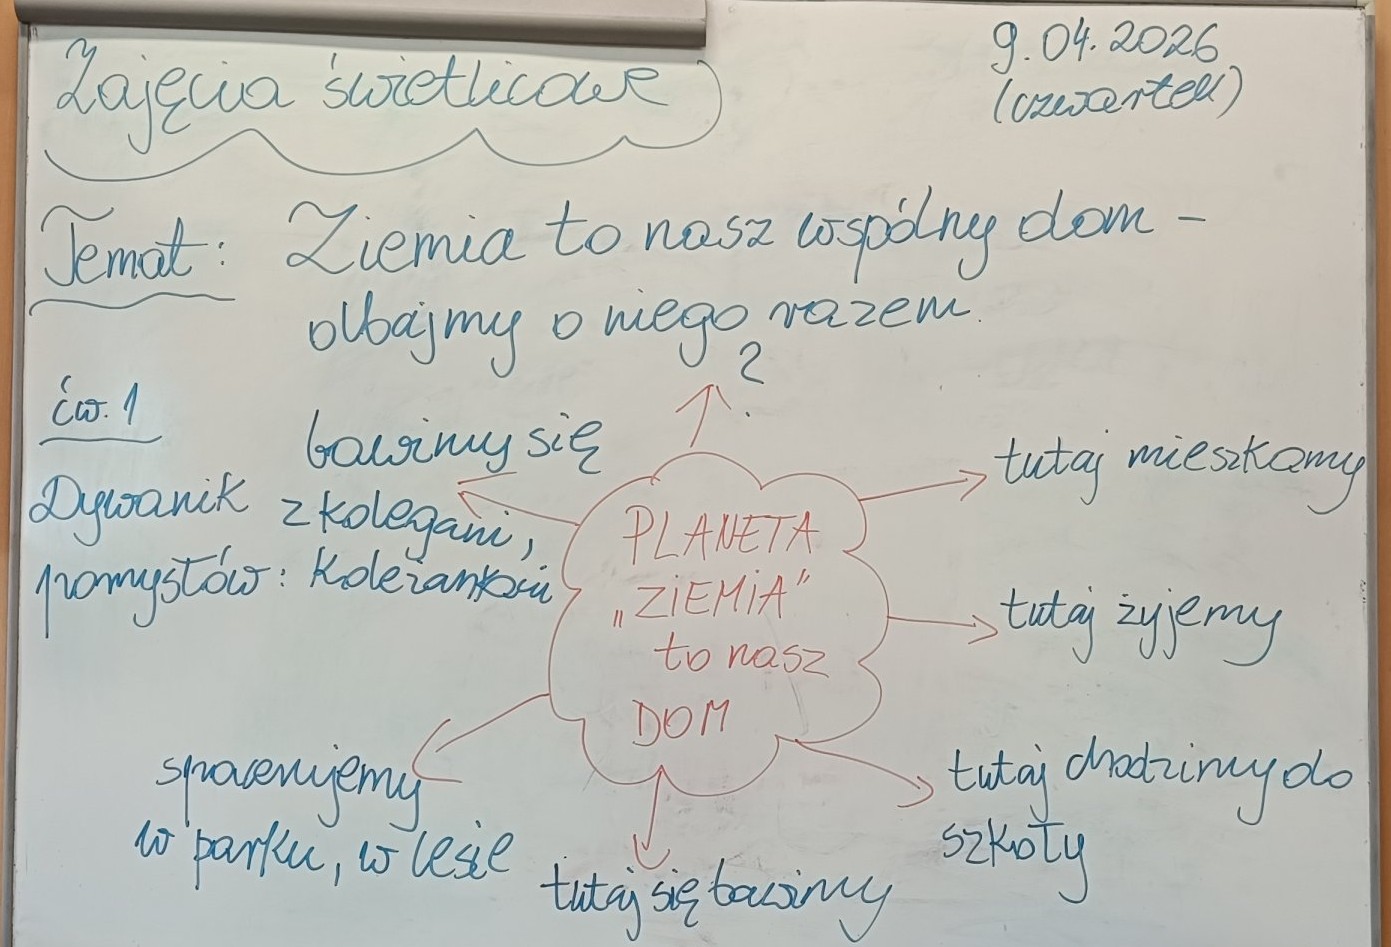 Zajęcia świetlicowe
9.04.2026
(czwartek)
Temat: Ziemia to nasz wspólny dom –
dbajmy o niego razem.
ćw. 1
Dywanik
pomysłów:
?
bawimy się
z kolegami,
koleżankami
PLANETA
„ZIEMIA”
to nasz
DOM
tutaj mieszkamy
tutaj żyjemy
tutaj chodzimy do
szkoły
tutaj się bawimy
spacerujemy
w parku, w lesie